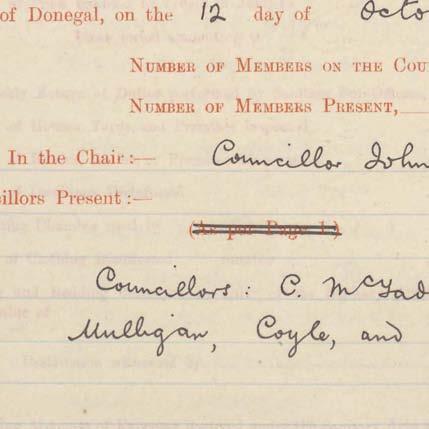 of Donegal, on the 12 day of Octo
NUMBER OF MEMBERS ON THE COU
NUMBER OF MEMBERS PRESENT,
In the Chair:— Councillor John
cillors Present:—
(As per Page 1.)
Councillors: C. McFad
Mulligan, Coyle, and